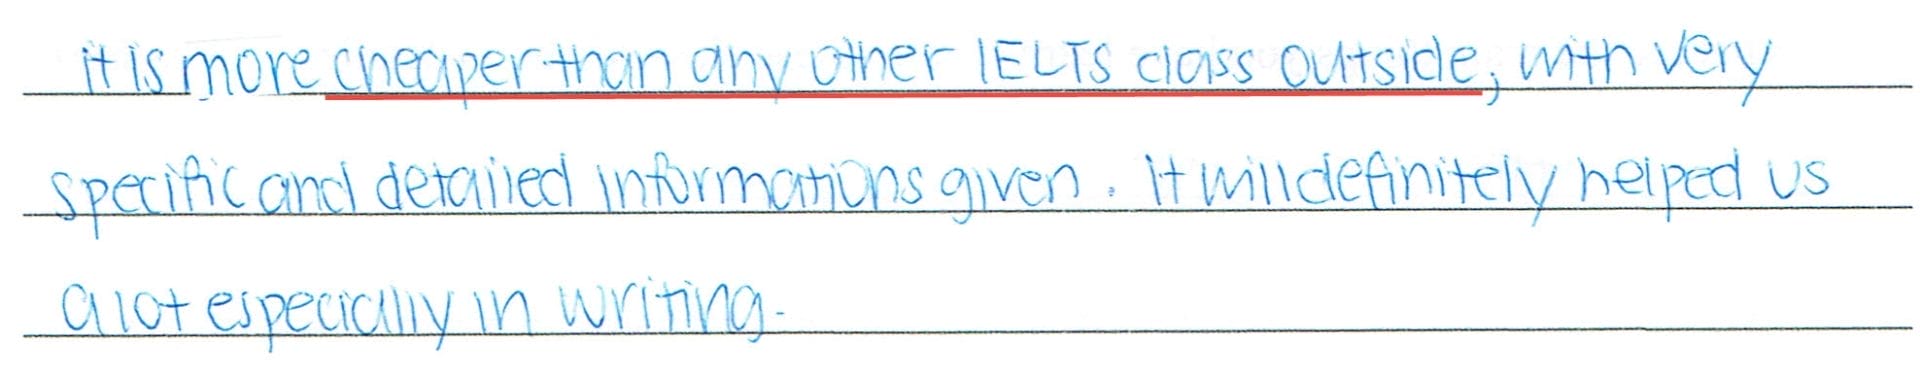 it is more cheaper than any other IELTS class outside, with very
specific and detailed informations given. It will definitely helped us
a lot especially in writing.